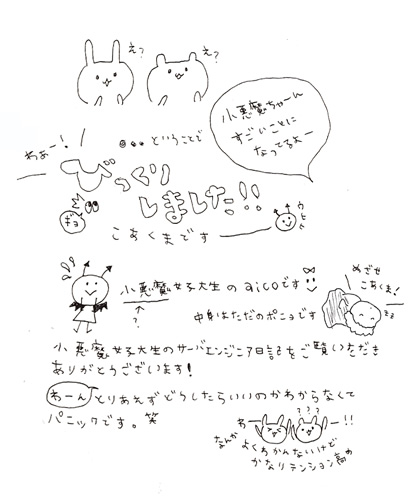 えっ
えっ?
小悪魔ちゃーん
すごいことに
なってるよー
ということで
わぁー!
びっくり
しました!!
ギョ
こあくまです
ウヒヒ
小悪魔女子大生のaicoです
?
中身はただのポニョです
めざせ
こあくま!
小悪魔女子大生のサーバエンジニア日記をご覧いただき
ありがとうございます!
わーん
とりあえずどうしたらいいのかわからなくて
パニックです。笑
???
わー
ー!!
なんか
よくわかんないけど
かなりテンション高め